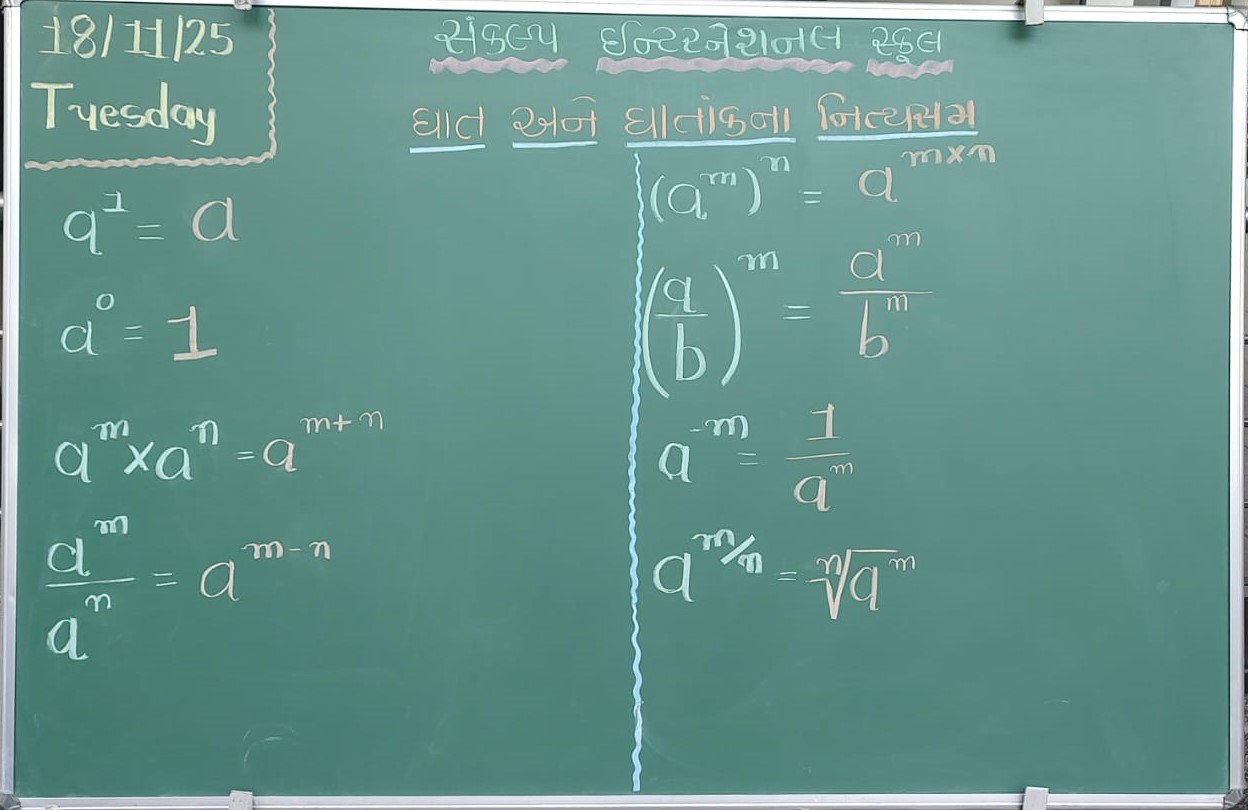 18/11/25
Tuesday
સંકલ્પ ઈન્ટરનેશનલ સ્કુલ
ઘાત અને ઘાતાંકના નિત્યસમ
a¹ = a
a⁰ = 1
aᵐ × aⁿ = aᵐ⁺ⁿ
aᵐ/aⁿ = aᵐ⁻ⁿ
(aᵐ)ⁿ = aᵐˣⁿ
(a/b)ᵐ = aᵐ/bᵐ
a⁻ᵐ = 1/aᵐ
a^(m/n) = ⁿ√aᵐ